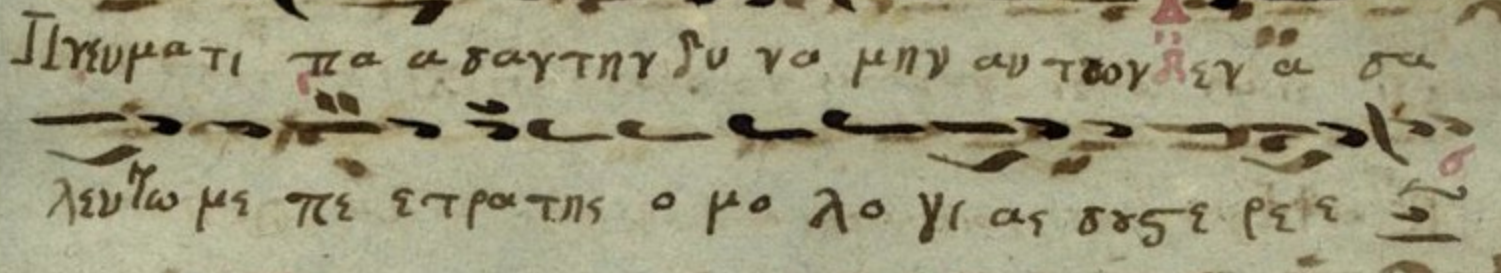 Πνευματι πα α σαν την δυ να μην αυ των εν α σα
λευ τω με πε ε τρα της ο μο λο γι ας σου στε ρε ε